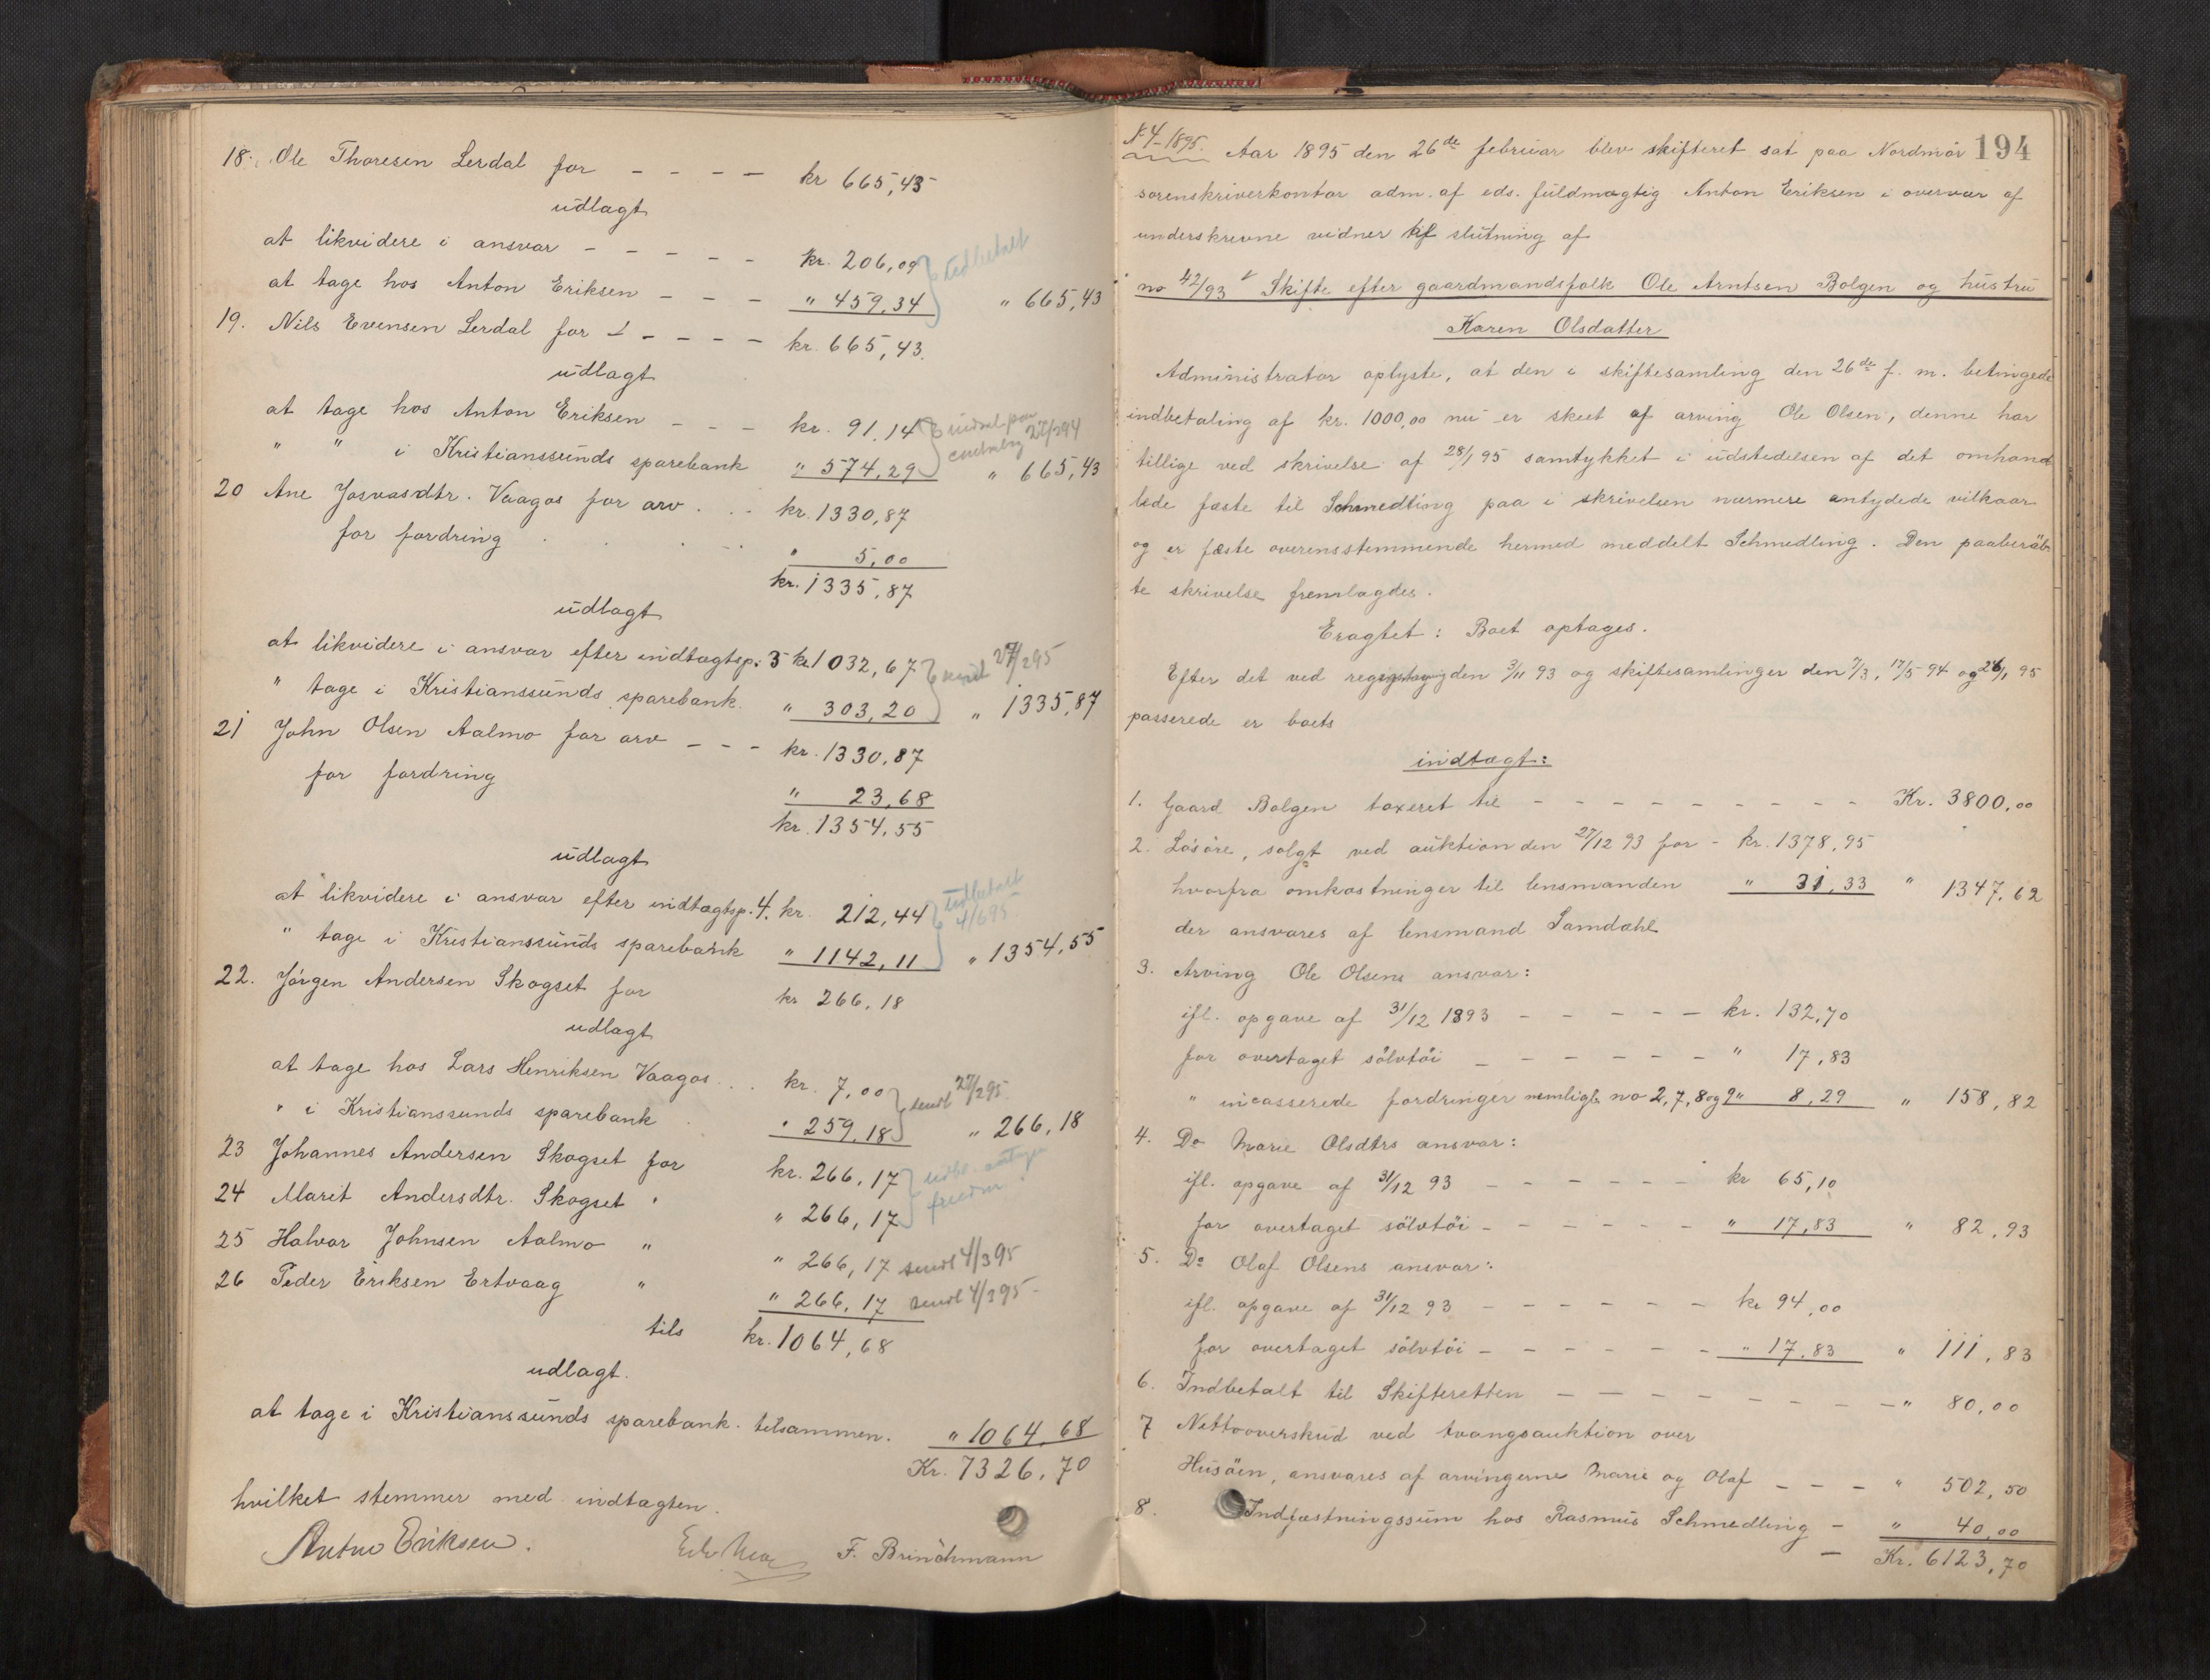 18. Ole Thoresen Lerdal for – – – – kr 665,43
udlagt
at likvidere i ansvar – – – – – kr. 206,09
at tage hos Anton Eriksen – – – " 459,34 " 665,43
19. Nils Evensen Lerdal for – – – – kr. 665,43.
udlagt
at tage hos Anton Eriksen – – – kr. 91.14
" " i Kristianssunds sparebank " 574,29 " 665,43
20 Ane Josvasdtr. Vaagos for arv . . . kr. 1330,87
for fordring " 5,00
kr. 1335,87
udlagt
at likvidere i ansvar efter indtægtsp. 3 kr 1032,67
" tage i Kristianssunds sparebank " 303,20 " 1335,87
21 John Olsen Aalmo for arv – – – kr. 1330,87
for fordring " 23,68
kr. 1354,55
udlagt
at likvidere i ansvar efter indtægtsp. 4. kr. 212,44 udbetalt 4/6 95
" tage i Kristianssunds sparebank " 1142,11 " 1354,55
22. Jörgen Andersen Skogset for kr 266,18
udlagt
at tage hos Lars Henriksen Vaagos . . kr. 7,00 sendt 27/2 95.
" i Kristianssunds sparebank " 259,18 " 266,18
23 Johannes Andersen Skogset for kr. 266,17
24 Marit Andersdtr. Skogset " " 266,17
25 Halvar Johnsen Aalmo " " 266,17 sendt 4/3 95
26 Peder Eriksen Ertvaag " " 266,17 sendt 4/3 95 –
tils kr. 1064,68
udlagt.
at tage i Kristianssunds sparebank tilsammen. " 1064,68
Kr. 7326,70
hvilket stemmer med indtægten.
Anton Eriksen. F. Brinchmann
194
N 4–1895. Aar 1895 den 26de februar blev skifteret sat paa Nordmör
sorenskriverkontor adm. af eds. fuldmægtig Anton Eriksen i overvær af
underskrevne vidner til slutning af
no 42/93 Skifte efter gaardmandsfolk Ole Arntsen Bolgen og hustru
Karen Olsdatter
Administrator oplyste, at den i skiftesamling den 26de f. m. betingede
indbetaling af kr. 1000,00 nu er skeet af arving Ole Olsen, denne har
tillige ved skrivelse af 28/1 95 samtykket i udstedelsen af det omhand
lede fæste til Schmedling paa i skrivelsen nærmere antydede vilkaar
og er fæste overensstemmende hermed meddelt Schmedling. Den paaberåb
te skrivelse fremlagdes.
Eragtet: Boet optages.
Efter det ved den 3/11 93 og skiftesamlinger den 7/3, 17/5 94 og 26/1 95
passerede er boets
indtægt:
1. Gaard Bolgen taxeret til – – – – – – – – – Kr. 3800,00
2. Lösöre, solgt ved auktion den 27/12 93 for – kr. 1378,95
hvorfra omkostninger til lensmanden " 31,33 " 1347,62
der ansvares af lensmand Samdahl
3. Arving Ole Olsens ansvar:
ifl. opgave af 31/12 1893 – – – – – kr. 132,70
for overtaget sölvtöi – – – – – – " 17,83
" incasserede fordringer nemlig no 2,7,8 og 9 " 8,29 " 158,82
4. Do Marie Olsdtrs ansvar:
ifl. opgave af 31/12 93 – – – – – – kr 65,10
for overtaget sölvtöi – – – – – – " 17,83 " 82,93
5. Do Olaf Olsens ansvar:
ifl. opgave af 31/12 93 – – – – – – kr 94,00
for overtaget sölvtöi – – – – – – " 17,83 " 111,83
6. Indbetalt til Skifteretten – – – – – – – – – " 80,00
7 Nettooverskud ved tvangsauktion over
Husöien, ansvares af arvingerne Marie og Olaf – – – " 502,50
8. Indfæstningssum hos Rasmus Schmedling – " 40,00
– Kr. 6123,70